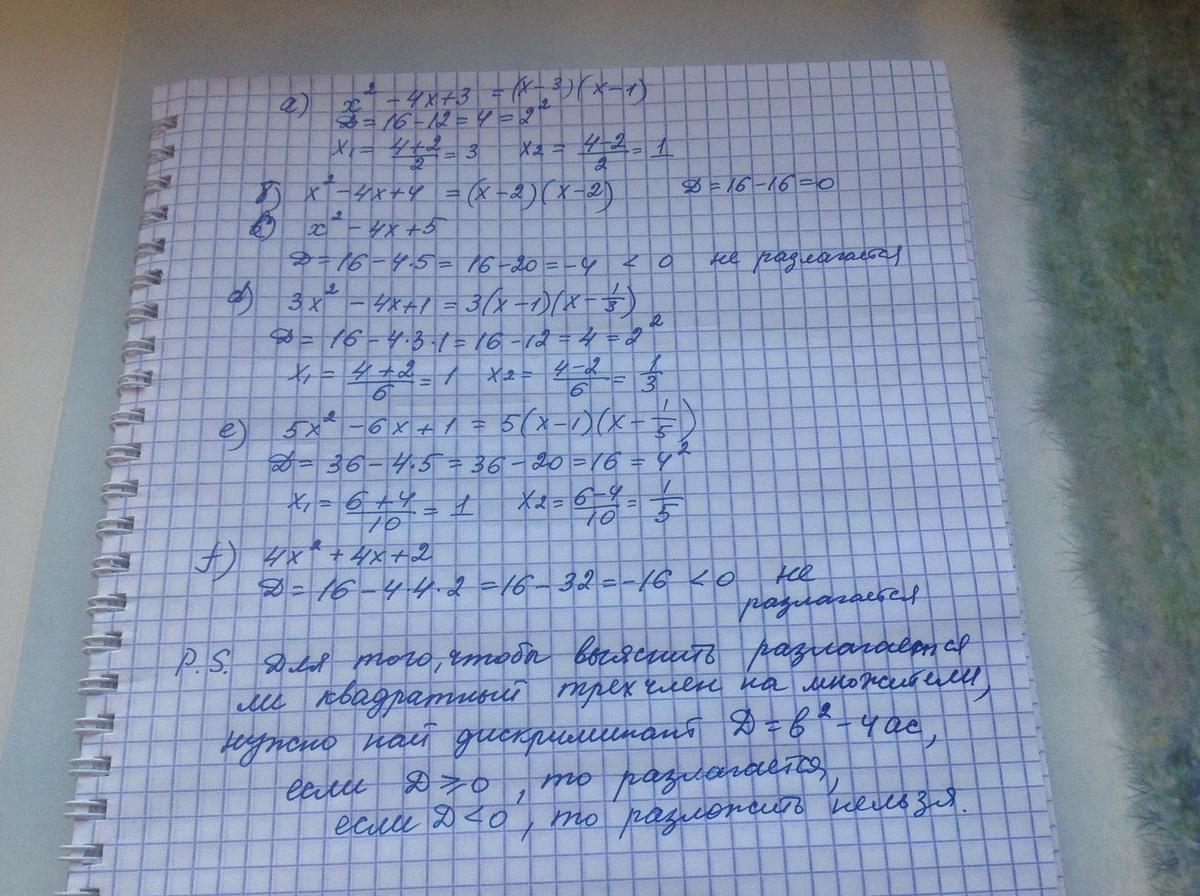 а) x² - 4x + 3 = (x - 3)(x - 1)
D = 16 - 12 = 4 = 2²
x₁ = (4 + 2)/2 = 3 x₂ = (4 - 2)/2 = 1
б) x² - 4x + 4 = (x - 2)(x - 2) D = 16 - 16 = 0
в) x² - 4x + 5
D = 16 - 4·5 = 16 - 20 = -4 < 0 не разлагается
d) 3x² - 4x + 1 = 3(x - 1)(x - 1/3)
D = 16 - 4·3·1 = 16 - 12 = 4 = 2²
x₁ = (4 + 2)/6 = 1 x₂ = (4 - 2)/6 = 1/3
e) 5x² - 6x + 1 = 5(x - 1)(x - 1/5)
D = 36 - 4·5 = 36 - 20 = 16 = 4²
x₁ = (6 + 4)/10 = 1 x₂ = (6 - 4)/10 = 1/5
f) 4x² + 4x + 2
D = 16 - 4·4·2 = 16 - 32 = -16 < 0 не
разлагается
P.S. Для того, чтобы выяснить разлагается
ли квадратный трехчлен на множители,
нужно найт дискриминант D = b² - 4ac,
если D ≥ 0, то разлагается,
если D < 0, то разложить нельзя.